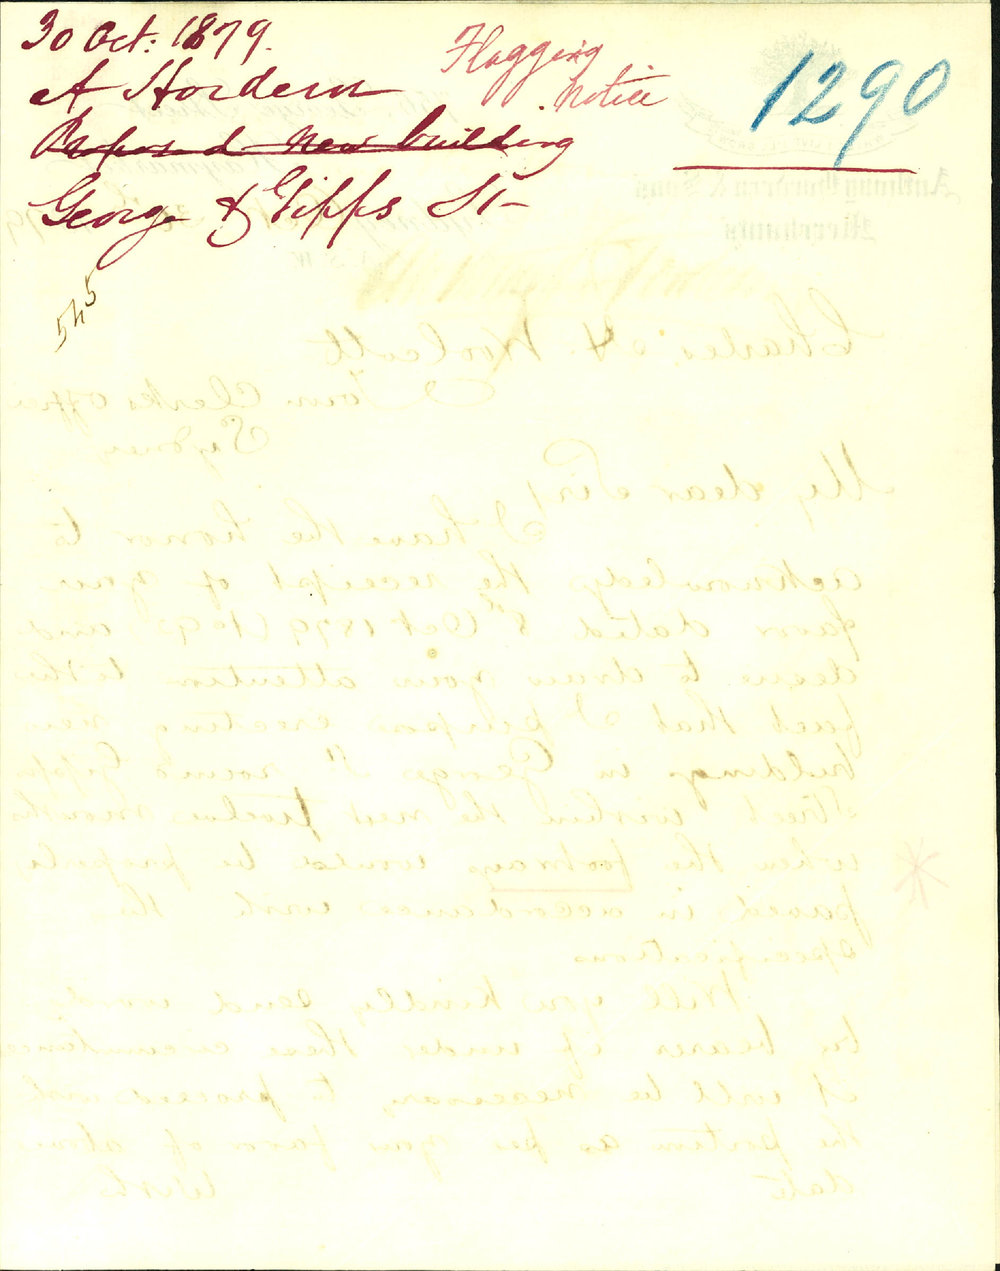 30 Oct: 1879.
A Hordern
Proposed New building
George & Gipps St
Flagging
Notice
1290
545
Anthony Hordern & Sons
Merchants
Charles H. Woolcott
Town Clerks Office
Sydney
My dear Sir,
I have the honor to
acknowledge the receipt of your
favor dated 8th Oct 1879 and
desire to draw your attention to the
fact that I purpose erecting new
buildings in George St round Gipps
Street within the next twelve months
when the footway would be properly
paved in accordance with the
specifications
Will you kindly send word
by bearer if under these circumstances
it will be necessary to proceed with
the portion as per your favor of above
date